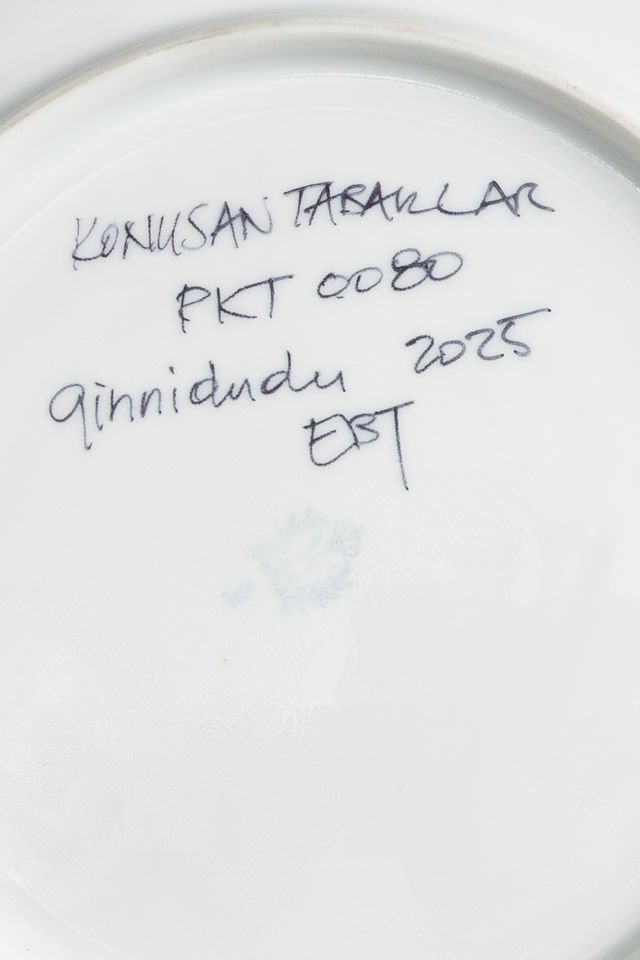 KONUSAN TABAKLAR
PKT 0080
ginnidudu 2025
EBT